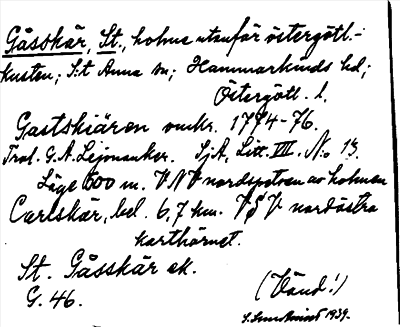 Gåsskär, St., holme utanför östergötl.-
kusten; S:t Anna sn; Hammarkinds hd;
Östergötl. l.
Gastskiären omkr. 1774-76.
Trol. G.A. Lejmanker. SjA, Litt. VIII. No 13.
Läge 600 m. VNV nordspetsen av holmen
Carlskär, bel. 6,7 km. VSV nordöstra
karthörnet.
St. Gåsskär ek.
G. 46.
(Vänd!)
1939.